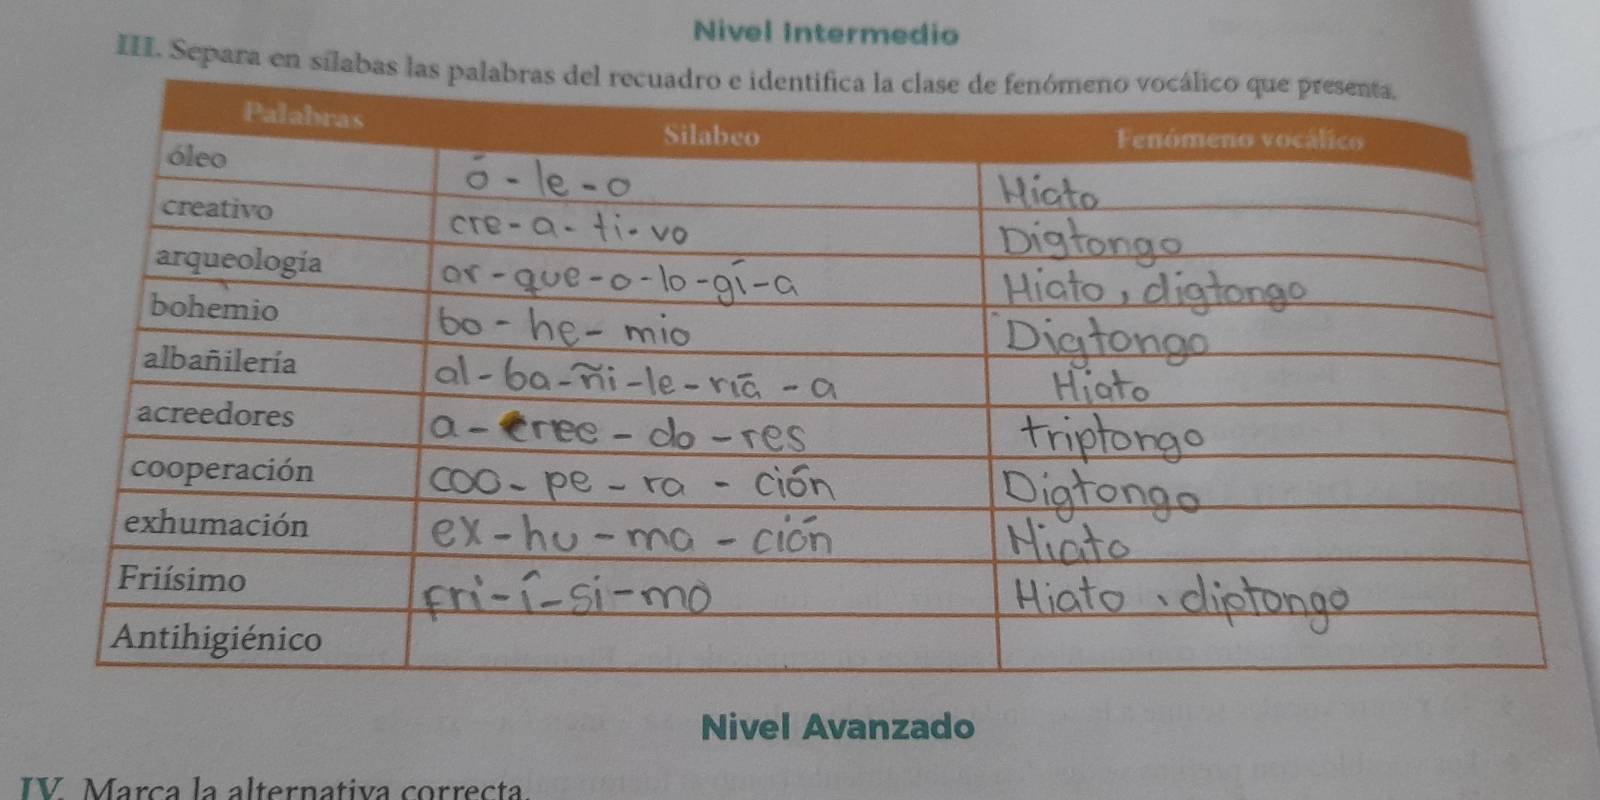 Nivel Intermedio
III. Separa en sílabas las palabras del recuadro e identifica la clase de fenómeno vocálico que presenta.
Palabras Silabeo Fenómeno vocálico
óleo ó-le-o Hiato
creativo cre-a-ti-vo Digtongo
arqueología ar-que-o-lo-gí-a Hiato, digtongo
bohemio bo-he-mio Digtongo
albañilería al-ba-ñi-le-ría-a Hiato
acreedores a-cree-do-res triptongo
cooperación coo-pe-ra-ción Digtongo
exhumación ex-hu-ma-ción Hiato
Friísimo Fri-í-si-mo Hiato, diptongo
Antihigiénico
Nivel Avanzado
IV. Marca la alternativa correcta.